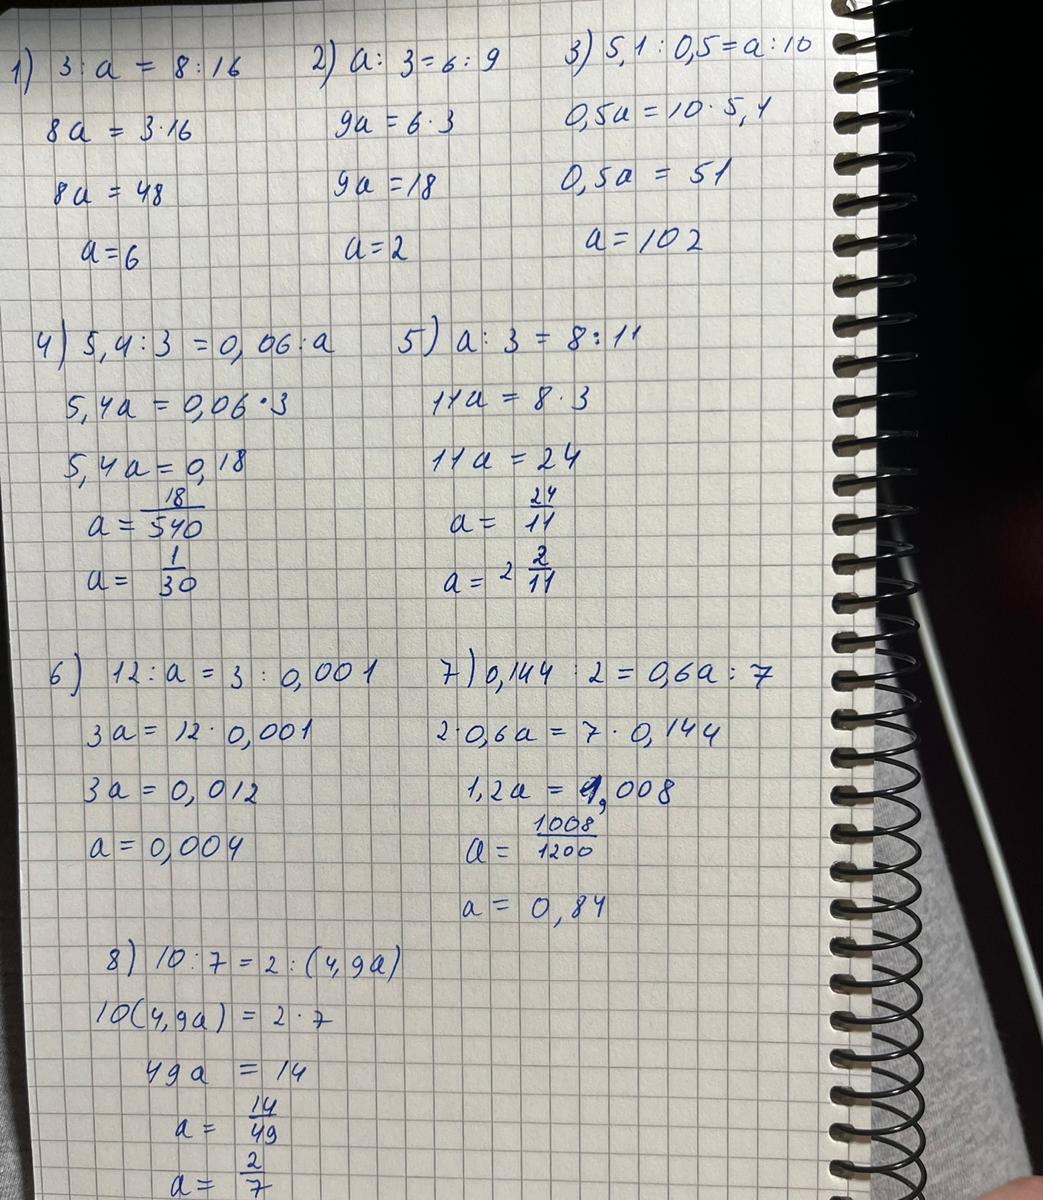 1) 3 : a = 8 : 16
8a = 3·16
8a = 48
a = 6
2) a : 3 = 6 : 9
9a = 6·3
9a = 18
a = 2
3) 5,1 : 0,5 = a : 10
0,5a = 10·5,1
0,5a = 51
a = 102
4) 5,4 : 3 = 0,06 : a
5,4a = 0,06·3
5,4a = 0,18
a = 18/540
a = 1/30
5) a : 3 = 8 : 11
11a = 8·3
11a = 24
a = 24/11
a = 2 2/11
6) 12 : a = 3 : 0,001
3a = 12·0,001
3a = 0,012
a = 0,004
7) 0,144 : 2 = 0,6a : 7
2·0,6a = 7·0,144
1,2a = 1,008
a = 1008/1200
a = 0,84
8) 10 : 7 = 2 : (4,9a)
10(4,9a) = 2·7
49a = 14
a = 14/49
a = 2/7